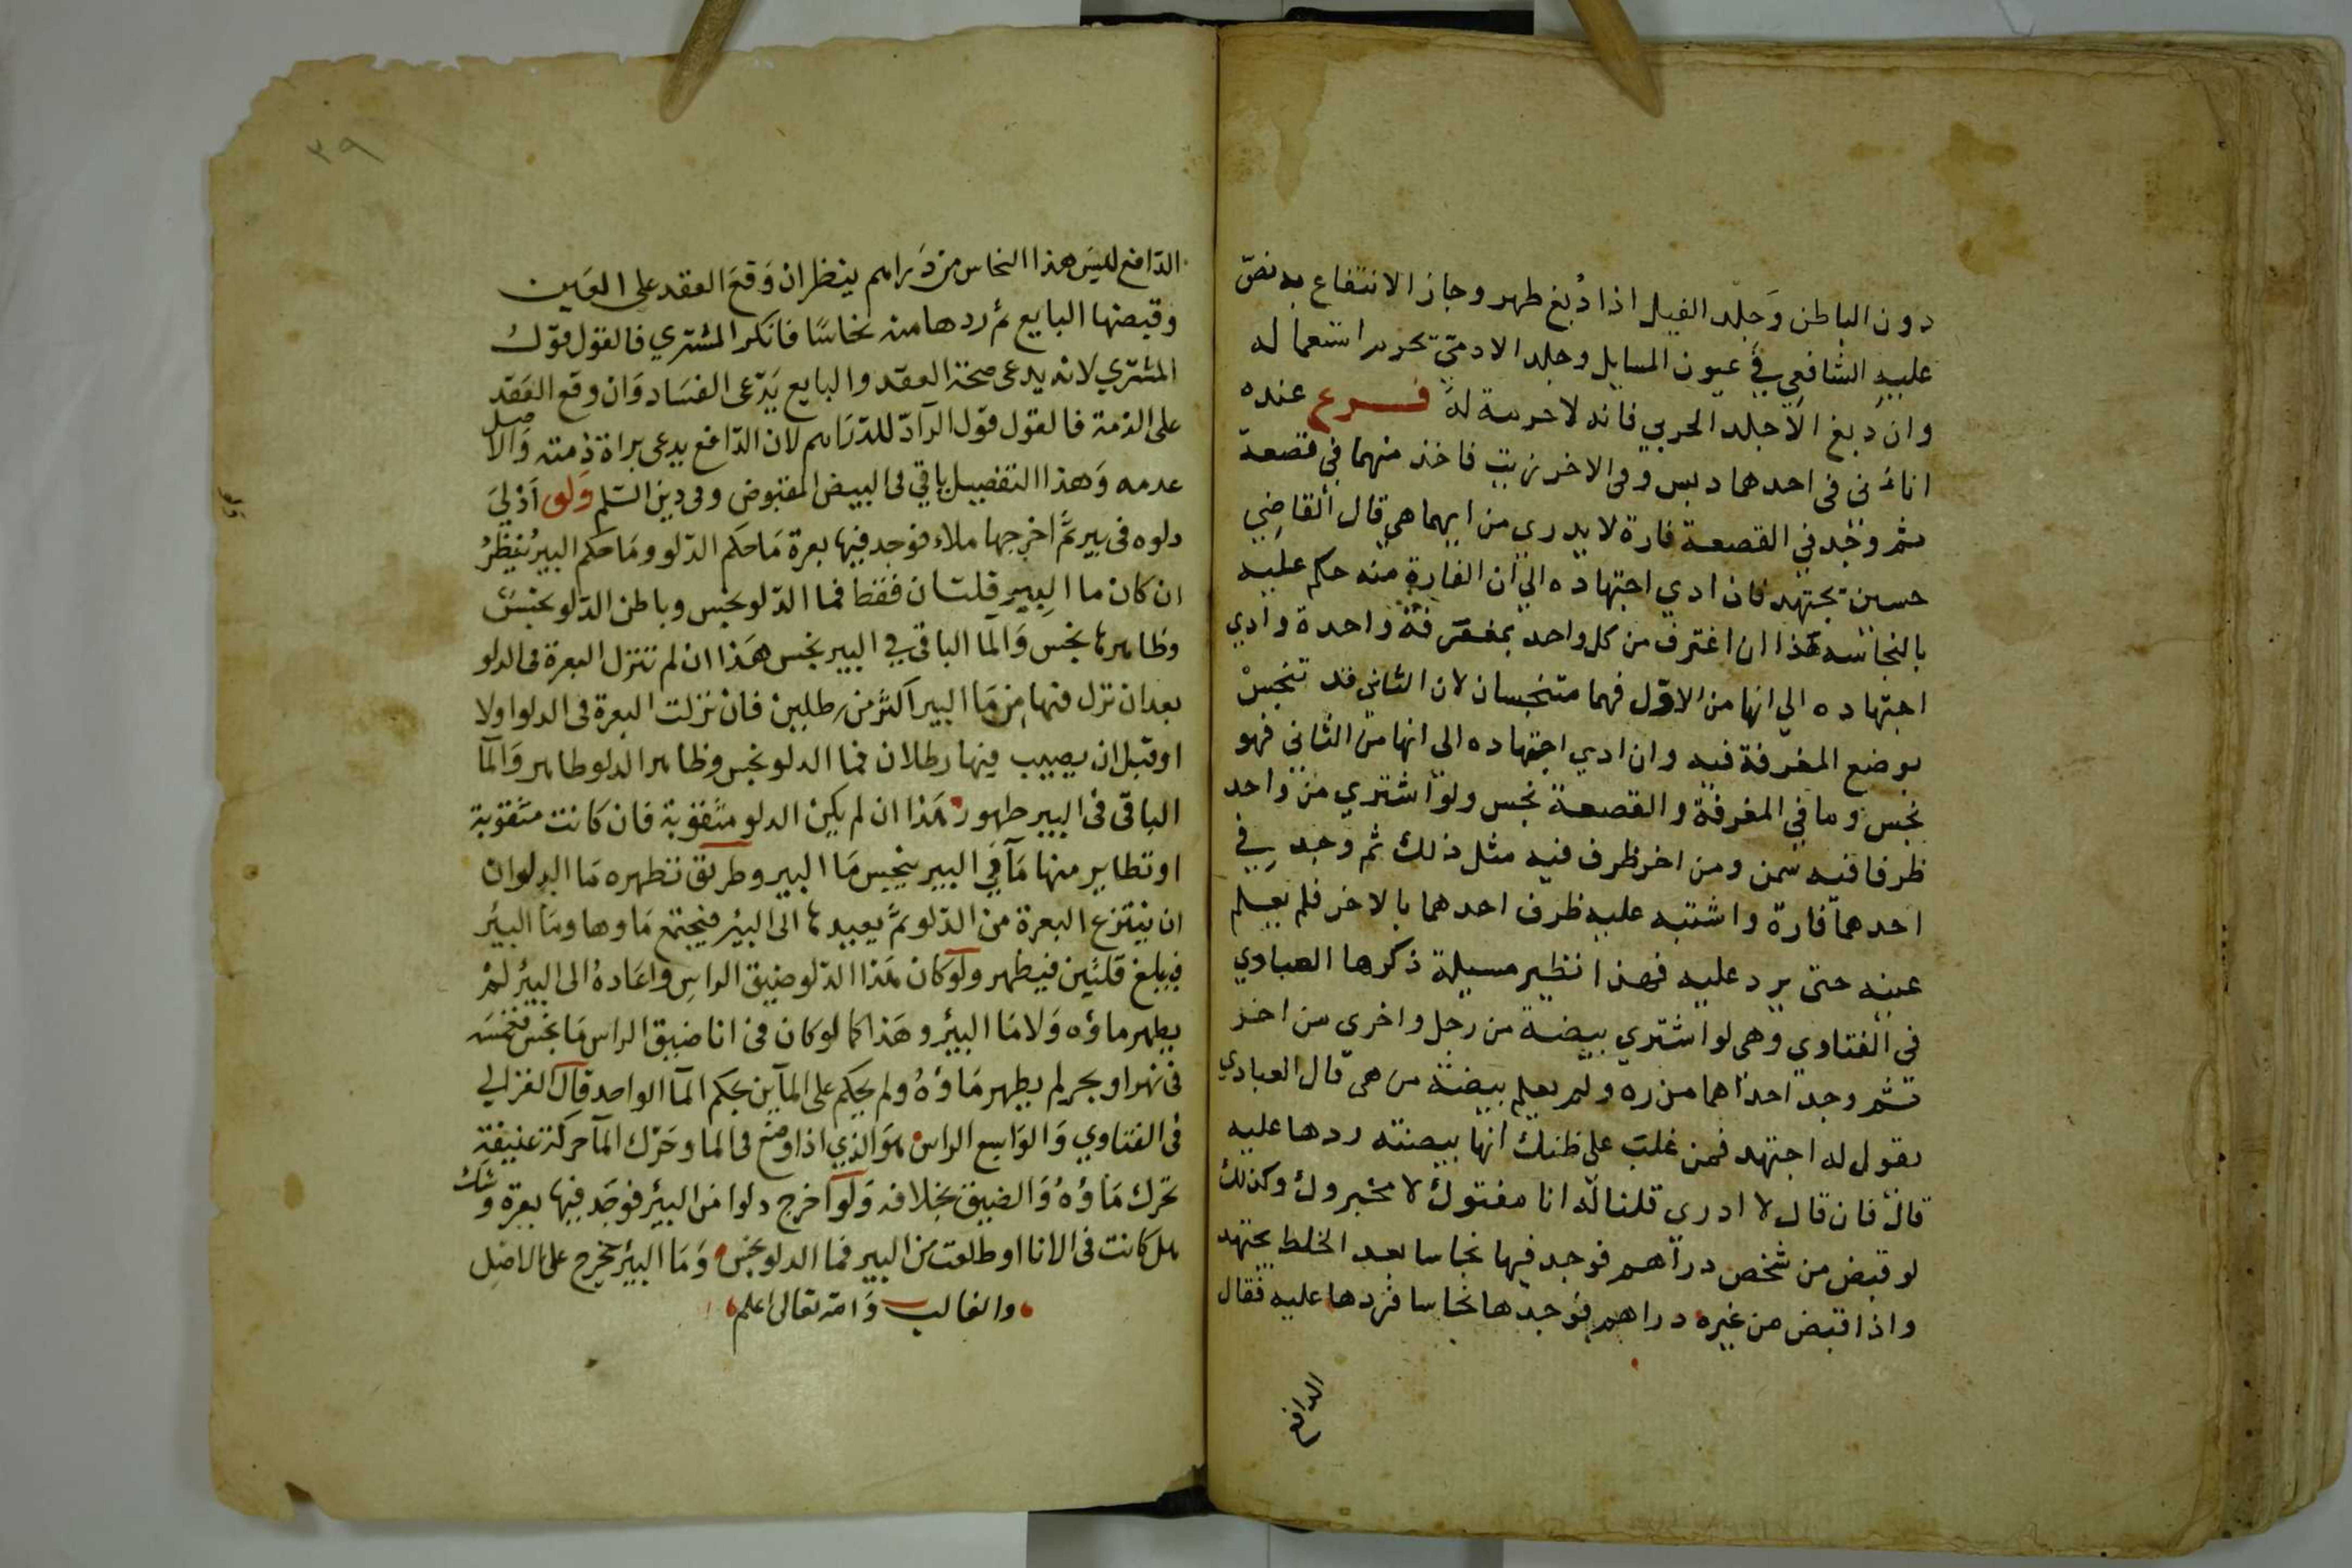 دون الباطن وَجلد الفيل اذا دُبغ طهر وجاز الانتفاع به نصّ
عليه الشافعي في عيون المسايل وجلد الادمّي تحرير استعماله
وان دبغ الا جلد الحربي فانه لا حرمة له فرع عنده
اناءَن فى احدهما دبس وفى الاخر زيت فاخذ منهما في قصعة
ثم وُجد في القصعة فارة لا يدرى من ايهما هي قال القاضي
حسين يجتهد فان ادي اجتهاده الي ان الفارة منه حكم عليه
بالنجاسة هذا ان اغترف من كل واحد بمغرفة واحدة وادي
اجتهاده الي انها من الاوّل فهما متنجسان لان الثانى قد تنجس
بوضع المغرفة فيه وان ادي اجتهاده الي انها من الثاني فهو
نجس وما في المغرفة والقصعة نجس ولو اشتري من واحد
ظرفا فيه سمن ومن اخر ظرف فيه مثل ذلك ثم وجد في
احدهما فارة واشتبه عليه ظرف احدهما بالاخر فلم يعلم
عينه حتى يرد عليه فهذا نظير مسيلة ذكرها العبادي
فى الفتاوي وهى لو اشتري بيضة من رجل واخرى من اخر
ثم وجد احداهما مذره ولم يعلم بيضة من هى قال العبادي
يقول له اجتهد فمن غلب على ظنك انها بيضته ردها عليه
قال فان قال لا ادري قلنا له انا مفتوك لا مخبروك وكذلك
لو قبض من شخص دراهم فوجد فيها نحاسا بعد الخلط يجتهد
واذا قبض من غيره دراهم فوجدها نحاسا فردها عليه فقال
الدافع
٣٩
الدّافع ليس هذا النحاس من دَراهم ينظر ان وَقعَ العقد على العَين
وقبضها البايع ثم ردها منه نحاسًا فانكر المشتري فالقول قوّل
المشتري لانه يدعى صحة العقد والبايع يَدّعى الفسَاد وَان وقع العَقد
على الذمة فالقول قوّل الرآدّ للدّرَاهم لان الدّافع يدعى براة ذمته وَالاصل
عدمه وَهذا التفصيل ياتي فى البيض المقبوض وفى دين السّلم وَلو اَدْليَ
دلوه فى بير ثمَّ اخرجها ملاء فوجد فيها بعرة مَا حكم الدّلو ومَا حكم البير يُنظرُ
ان كان ما البير قلتان فقط فما الدّلو نجس وباطن الدّلو نجسٌ
وظاهرها نجس وَالمآ الباقى في البير نجس هَذا ان لم تنزل البعرة فى الدلو
بعد ان نزل فيها من مَا البير اكثر من رطلين فان نزلت البعرة فى الدلو اولا
او قبل ان يصيب فيها رطلان فما الدلو نجس وظاهر الدلو طاهر وَالمآ
الباقى فى البير طهور هَذا ان لم يكن الدلو مثقوبة فان كانت مثقوبة
او تطاير منها مَآ في البير ينجس مَا البير وطريق تطهره مَا الدلو ان
ان ينتزع البعرة من الدّلو ثمَّ يعيدها الى البئر فيجتمع مَاوها ومَا البئر
فيبلغ قلتَين فيطهر ولَو كان هَذا الدّلو ضيّق الراسِ واعَادهُ الى البئر لمْ
يطهر ماؤه وَلا مَا البئر وهَذا كما لو كان فى انا ضيق الراس مَا نجس فغمسَه
فى نهر او بحر لم يطهر مَاؤهُ ولم يحكم على المآين بحكم المآ الواحد قال الغزالي
فى الفتاوي وَالوَاسع الراس هوَ الذي اذا وضع فى الما وحَرّك المآ حركة عنيفة
تحرك مَاؤهُ وَالضيق بخلافه وَلو اخرج دلوا من البئر فوجَد فيها بعرة وَشك
هل كانت فى الانا او طلعت من البير فما الدلو نجس وَمَا البئر يخرج على الاصل
والغالب وَالله تعالى اعلم